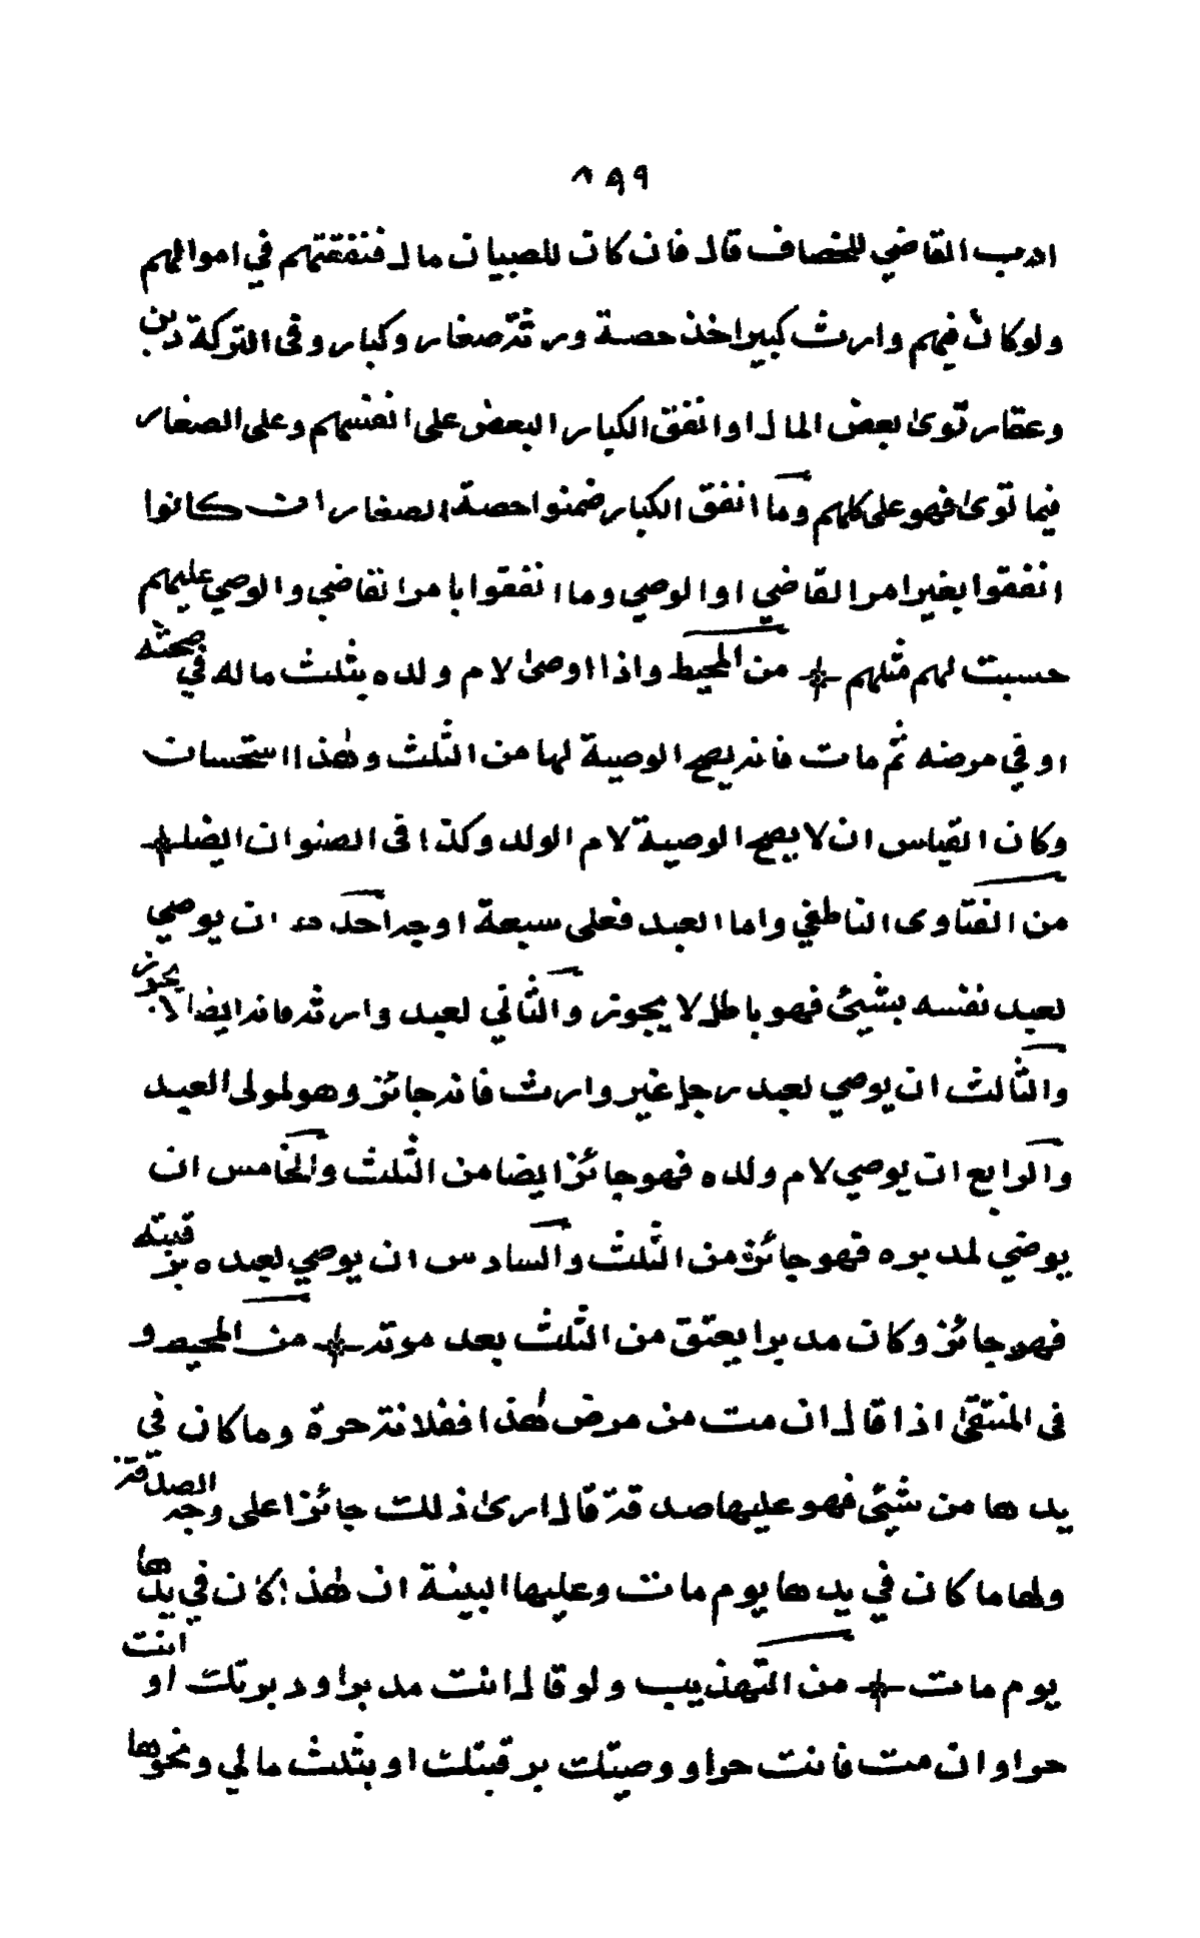 ٨٩٩
ادب القاضي للخصاف قال فان كان للصبيان مال فنفقتهم في اموالهم
ولو كان فيهم وارث كبير اخذ حصة ورثة صغار وكبار وفى التركة دين
وعقار توىٰ بعض المال او انفق الكبار البعض على انفسهم وعلى الصغار
فيما توىٰ فهو على كلهم وما انفق الكبار ضمنوا حصة الصغار ان كانوا
انفقوا بغير امر القاضي او الوصي وما انفقوا بامر القاضي والوصي عليهم
حسبت لهم مثلهم من المحيط واذا اوصىٰ لام ولده بثلث ماله في صحته
او في مرضه ثم مات فانه يصح الوصية لها من الثلث وهٰذا استحسان
وكان القياس ان لا يصح الوصية لام الولد وكذا فى الصنوان ايضا
من الفتاوى الناطفي واما العبد فعلى سبعة اوجه احده ان يوصي
لعبد نفسه بشيئ فهو باطل لا يجوز والثاني لعبد وارثه فانه ايضا لا يجوز
والثالث ان يوصي لعبد رجل غير وارث فانه جائز وهو لمولى العبد
والرابع ان يوصي لام ولده فهو جائز ايضا من الثلث والخامس ان
يوضي لمدبره فهو جائز من الثلث والسادس ان يوصي لعبده برقبته
فهو جائز وكان مدبرا يعتق من الثلث بعد موته من المحيط و
فى المنتقىٰ اذا قال ان مت من مرض هٰذا ففلانة حرة وما كان في
يدها من شيئ فهو عليها صدقة قال ارىٰ ذلك جائزا على وجه الصدقة
ولها ما كان في يدها يوم مات وعليها البينة ان هٰذا كان في يدها
يوم مات من التهذيب ولو قال انت مدبر او دبرتك او انت
حر او ان مت فانت حر او وصيتك برقبتك او بثلث مالي ونحوها